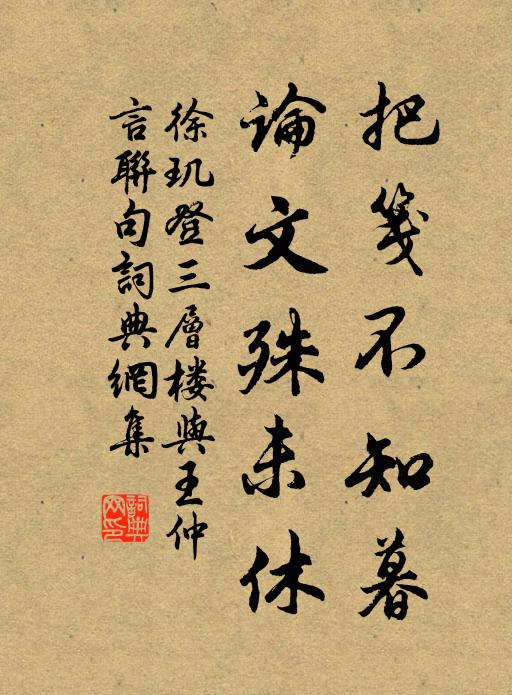 把笺不知暮
論文殊未休
徐玑登三層楼與王仲
言聯句詞典網集
詞典
网印